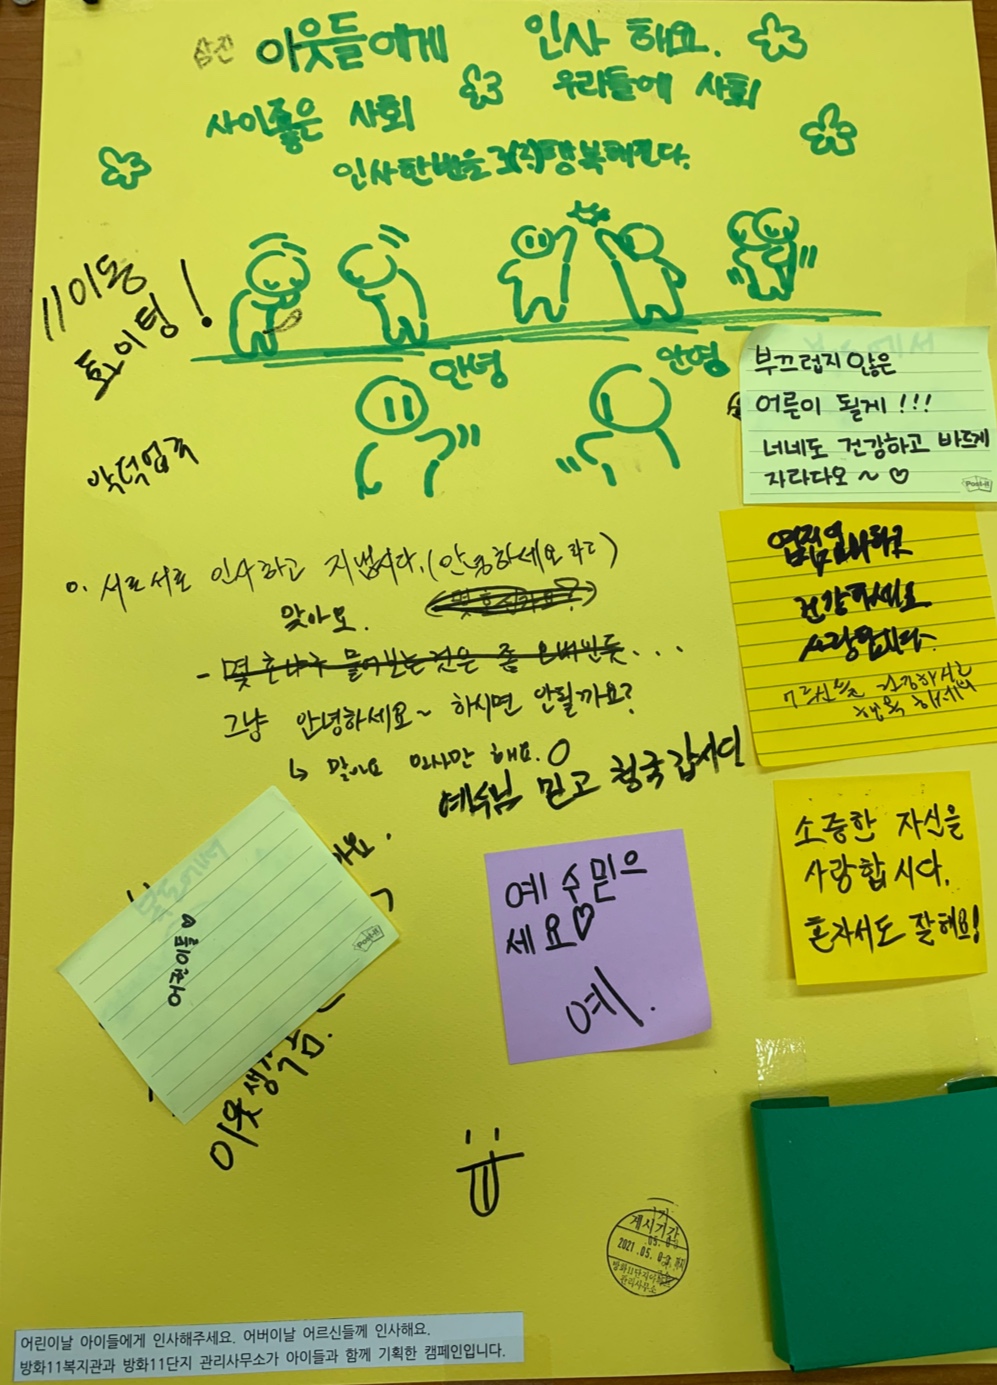 이웃들에게 인사 해요.
사이좋은 사회 우리들에 사회
인사한번을 행복해진다.
11이동
화이팅!
안녕
안녕
부끄럽지 않은
어른이 될게!!!
너네도 건강하고 바르게
자라다오~♡
Post-it
건강하세요
사랑합니다.
서로서로 인사하고 지냅시다.(안녕하세요 라고)
맞아요.
- 몇 호냐구 물어보는것은 좀 오버인듯...
그냥 안녕하세요~ 하시면 안될까요?
↳ 맞아요 인사만 해요.
예수님 믿고 천국갑시다
어린이들♥
Post-it
예수믿으
세요♡
예.
소중한 자신을
사랑합시다.
혼자서도 잘해요!
이웃생각
게시기간
2021.05.
방화11단지아파트
관리사무소
어린이날 아이들에게 인사해주세요. 어버이날 어르신들께 인사해요.
방화11복지관과 방화11단지 관리사무소가 아이들과 함께 기획한 캠페인입니다.